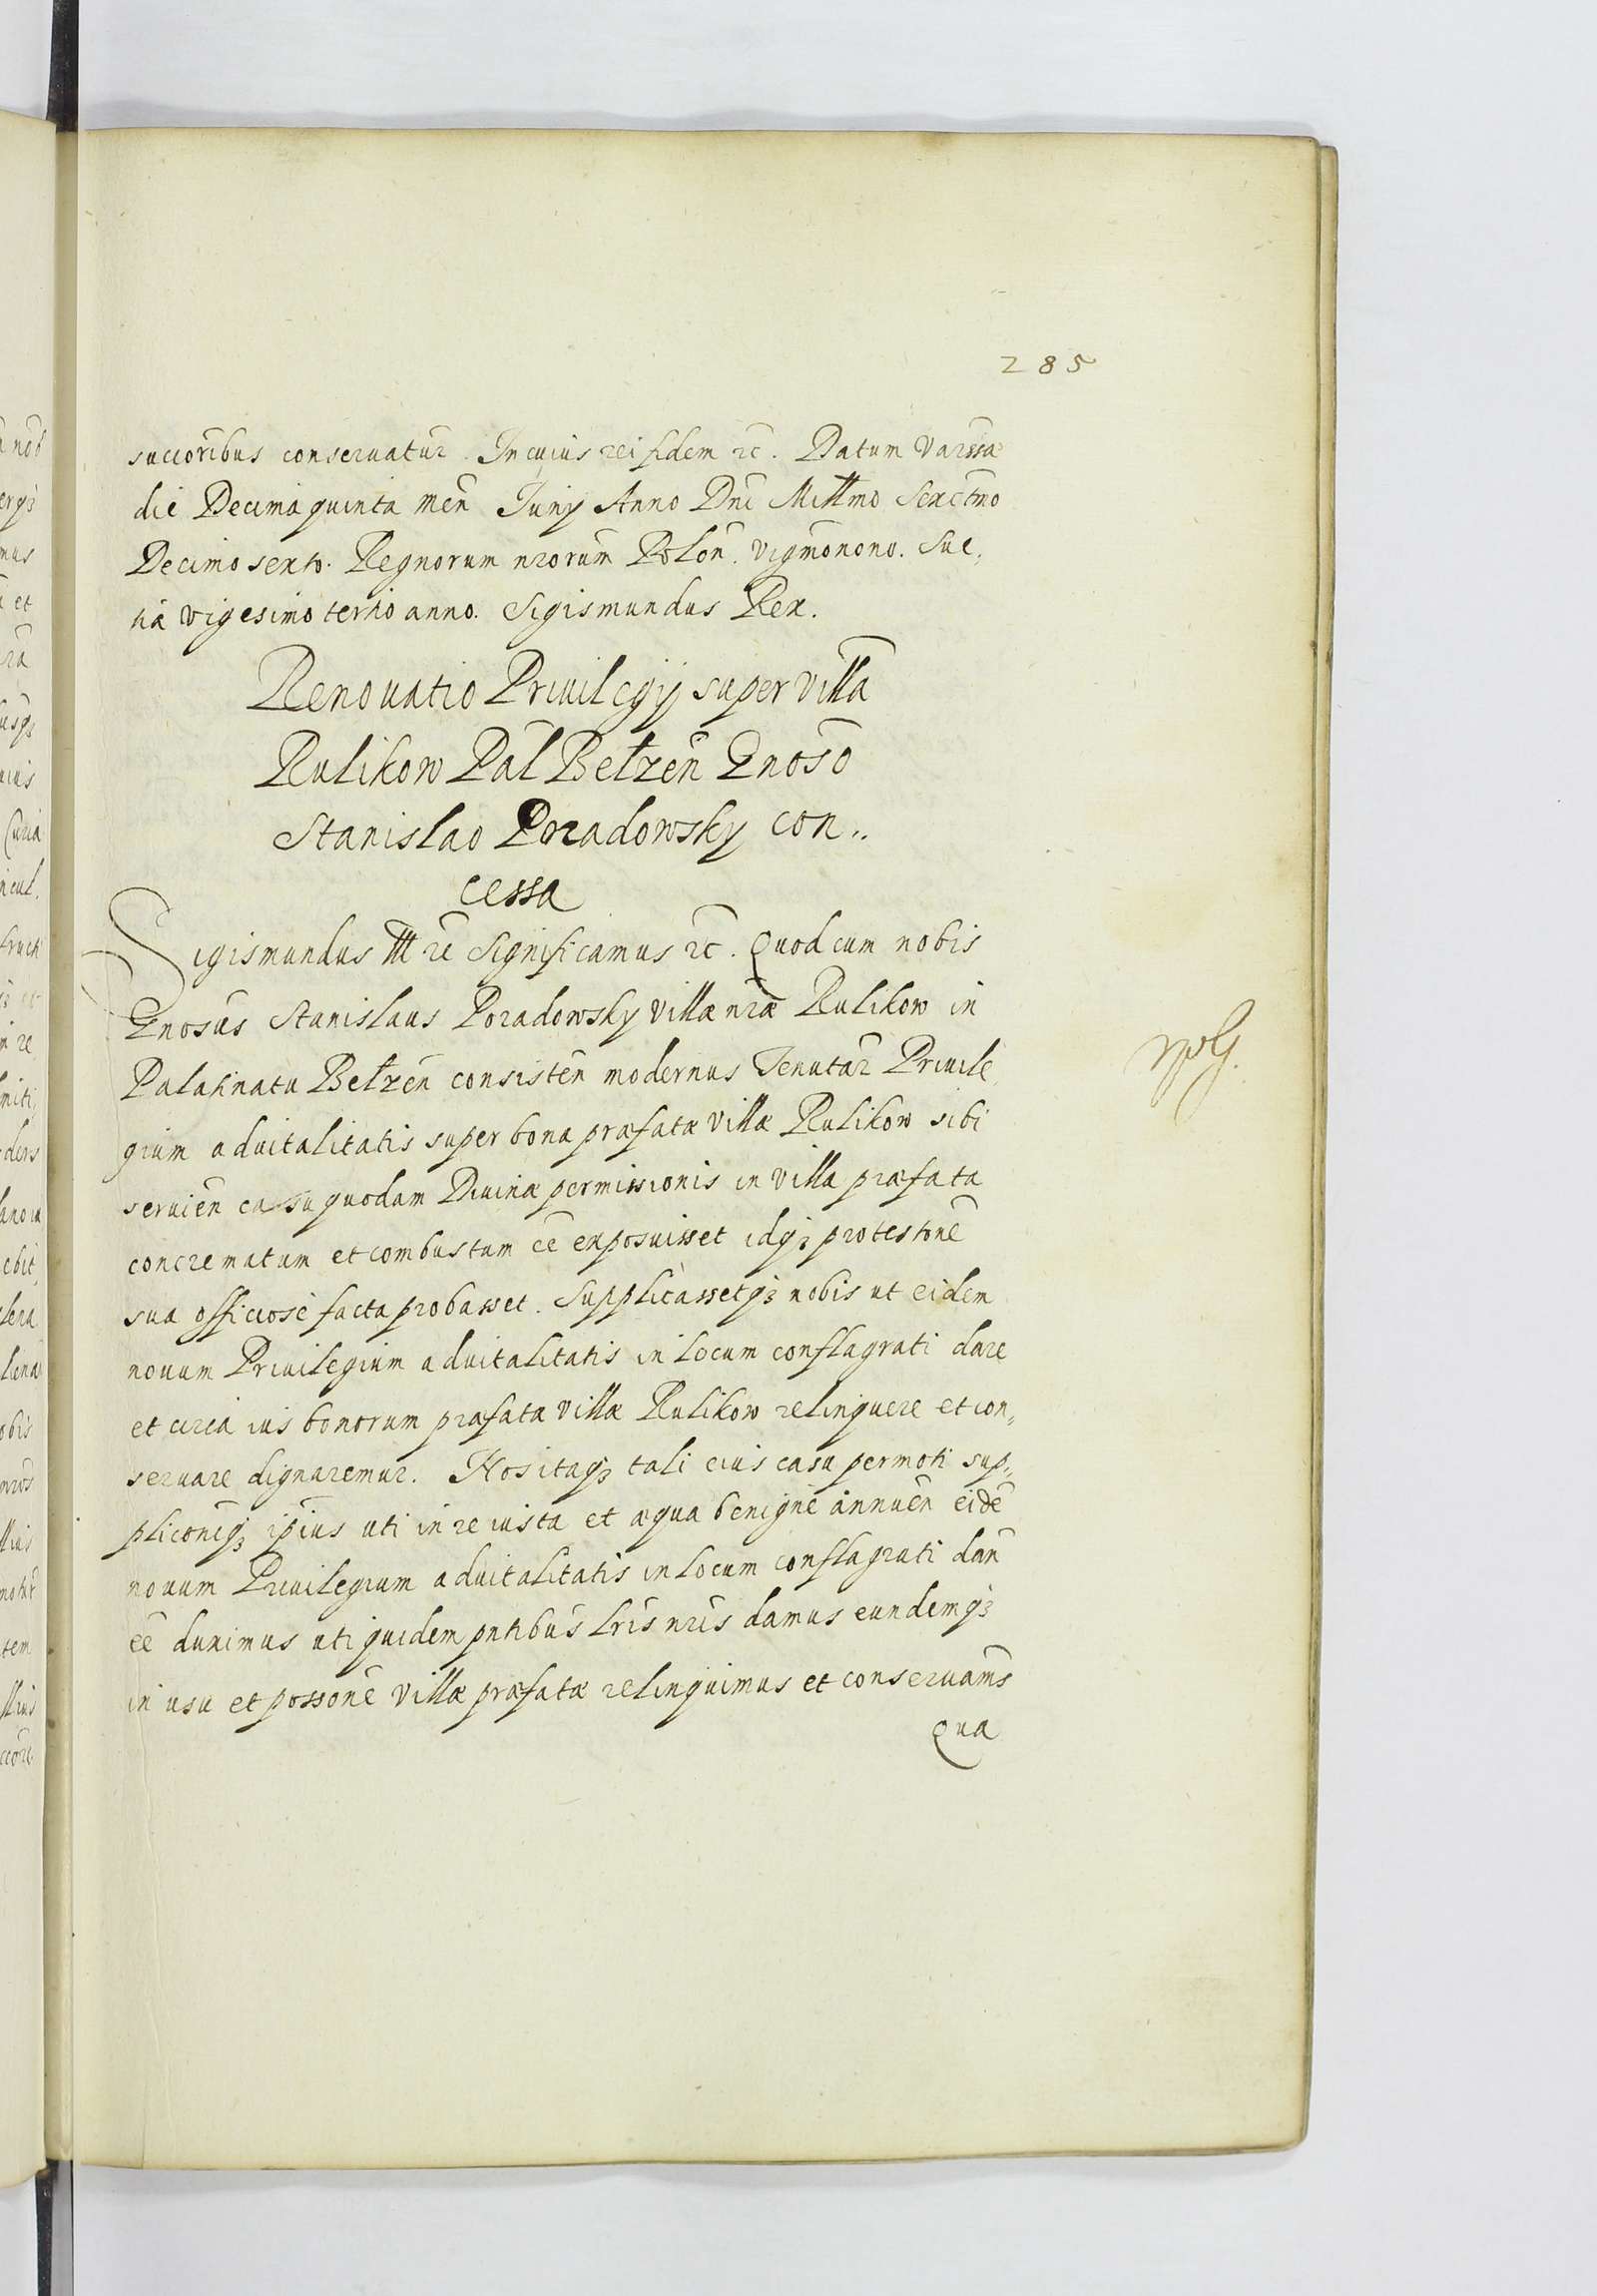 285
succoribus conseruatur. In cuius rei fidem rc. Datum Varssa
die Decima quinta men Junij Anno Dni Millmo Sexctmo
Decimo sexto. Regnorum nrorum Polon. vigmonono. Sue,
tiæ vigesimo tertio anno. Sigismundus Rex.
Renouatio Priuilegij super villa
Rulikow Pal Belzen Gnoso
Stanislao Poradowsky con..
cessa
Sigismundus III rc Significamus rc. Quod cum nobis
Gnosus Stanislaus Poradowsky villæ nræ Rulikow in
Palatinatu Belzen consisten modernus Tenutar Priuile
gium aduitalitatis super bona præfatæ villæ Rulikow sibi
seruien casu quodam Diuinæ permissionis in villa præfata
concrematum et combustum ee exposuisset idq; protestone
sua officiose facta probasset. Supplicassetq; nobis ut eidem
nouum Priuilegium aduitalitatis in locum conflagrati dare
et circa ius bonorum præfatæ villæ Rulikow relinquere et con,,
seruare dignaremur. Nos itaq; tali eius casu permoti sup,,
pliconiq; ipius uti in re iusta et æqua benigne annuen eide
nouum Priuilegium aduitalitatis in locum conflagrati dan
ee duximus uti quidem pntibus lris nris damus eundemq;
in usu et possone villæ præfatæ relinquimus et conseruams
Qua